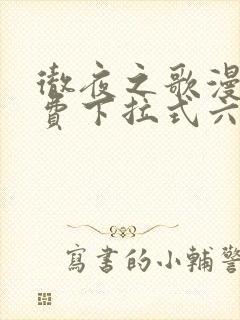 徹夜之歌漫
費下拉式六
寫書的小輔警